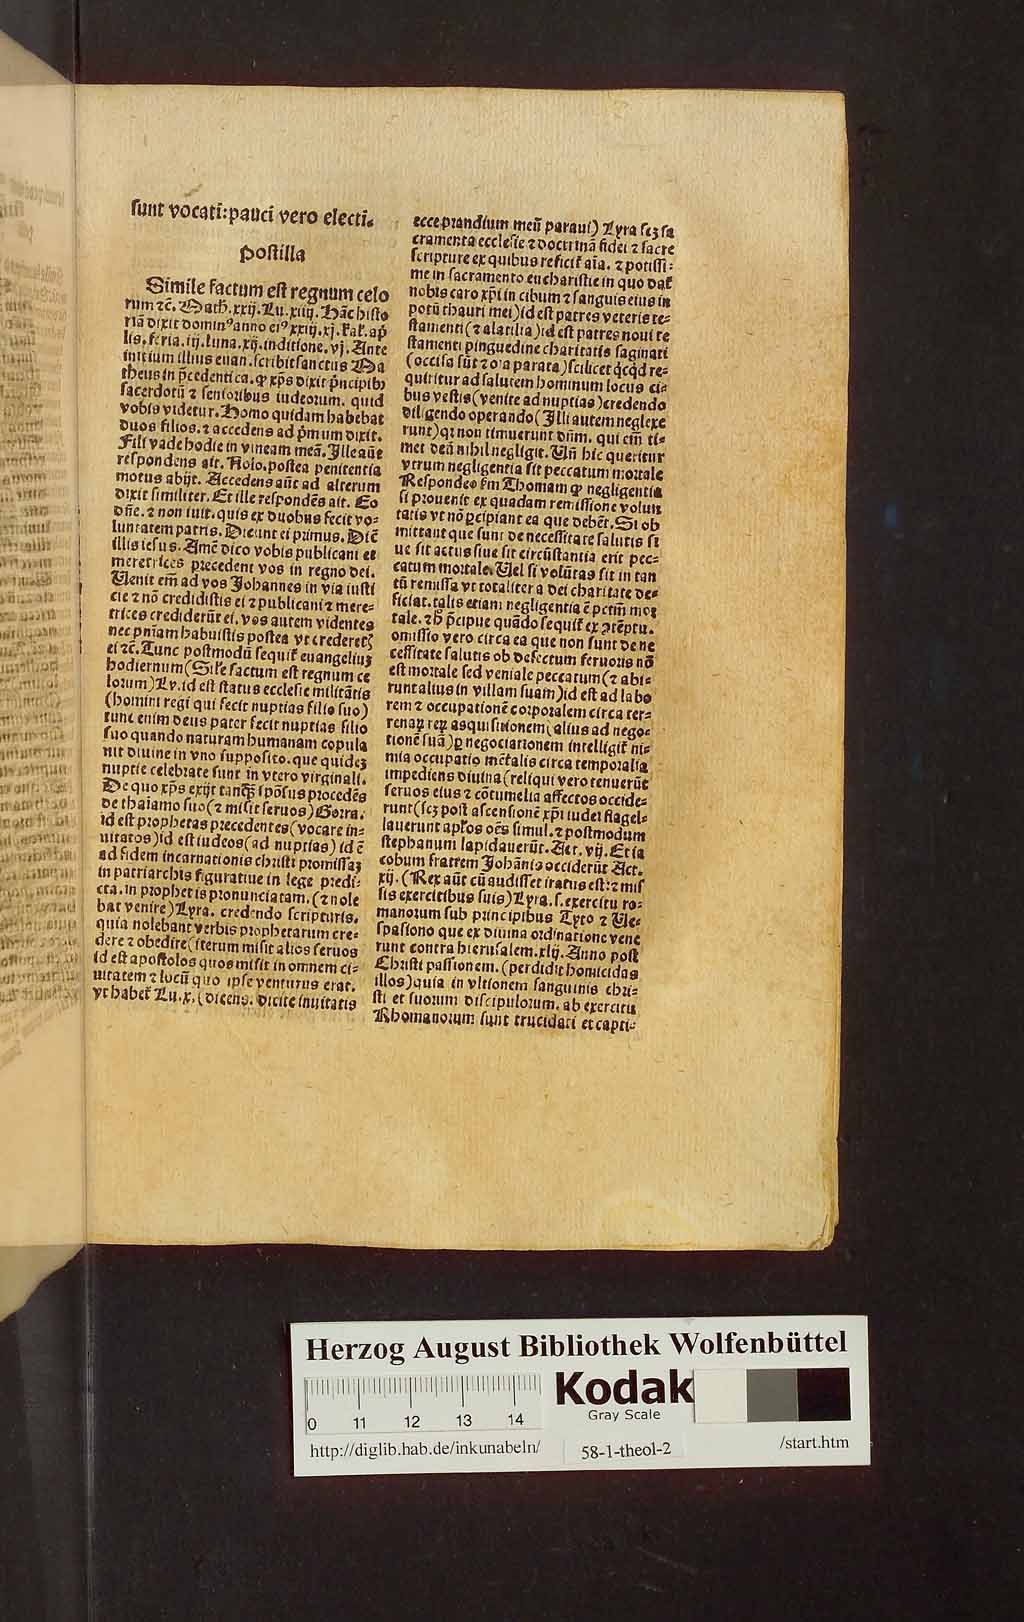 sunt vocati:pauci vero electi.
Postilla
Simile factum est regnum celo
rum ⁊c. Math̄. xxij. Lu. xiiij. Hāc histo
riā dixit dominꝰ anno eiꝰ xxiij. xj. kal̄. ap̄
lis. feria. iij. luna. xij. inditione. vj. Ante
initium illius euan. scribit sanctus Ma
theus in p̄cedenti ca. ꝙ xp̄s dixit p̄ncipibꝫ
sacerdotū ⁊ senioribus iudeorum. quid
vobis videtur. Homo quidam habebat
duos filios. ⁊ accedens ad p̄mum dixit.
Fili vade hodie in vineam meā. Ille aūt
respondens ait. Nolo. postea penitentia
motus abijt. Accedens aūt ad alterum
dixit similiter. Et ille respondēs ait. Eo
dn̄e. ⁊ non iuit. quis ex duobus fecit vo-
luntatem patris. Dicunt ei primus. Dic̄
illis iesus. Amē dico vobis publicani et
meretrices precedent vos in regno dei.
Uenit em̄ ad vos Johannes in via iusti
cie ⁊ nō credidistis ei ⁊ publicani ⁊ mere-
trices crediderūt ei. vos autem videntes
nec pn̄iam habuistis postea vt crederetꝭ
ei ⁊c. Tunc postmodū sequit̄ euangeliuꝫ
hodiernum (Sil̄e factum est regnum ce
lorum) Ly. id est status ecclesie militātis
(homini regi qui fecit nuptias filio suo)
tunc enim deus pater fecit nuptias filio
suo quando naturam humanam copula
uit diuine in vno supposito. que quideꝫ
nuptie celebrate sunt in vtero virginali.
De quo xp̄s exijt tanq̄ꝫ spōsus procedēs
de thalamo suo (⁊ misit seruos) Gorra.
id est prophetas precedentes (vocare in-
uitatos) id est iudeos (ad nuptias) id ē
ad fidem incarnationis christi promissaꝫ
in patriarchis figuratiue in lege predi-
cta. in prophetis pronunciatam. (⁊ nole
bat venire) Lyra. credendo scripturis.
quia nolebant verbis prophetarum cre-
dere ⁊ obedire (iterum misit alios seruos
id est apostolos quos misit in omnem ci-
uitatem ⁊ locū quo ipse venturus erat.
vt habet̄ Lu. x. (dicens. dicite inuitatis
ecce prandium meū paraui) Lyra scꝫ sa
cramenta ecclesie ⁊ doctrinā fidei ⁊ sacre
scripture ex quibus reficit̄ aīa. ⁊ potissi-
me in sacramento eucharistie in quo dat̄
nobis caro xp̄i in cibum ⁊ sanguis eius in
potū (thauri mei) id est patres veteris te-
stamenti (⁊ alatilia) id est patres noui te
stamenti pinguedine charitatis saginati
(occisa sūt ⁊ oīa parata) scilicet q̄cq̄d re-
quiritur ad salutem hominum locus ci-
bus vestis (venite ad nuptias) credendo
diligendo operando (Illi autem neglexe
runt) qꝛ non timuerunt dn̄m. qui em̄ ti-
met deū nihil negligit. Un̄ hic queritur
vtrum negligentia sit peccatum mortale
Respondeo sm̄ Thomam ꝙ negligentia
si prouenit ex quadam remissione volun
tatis vt nō ꝑcipiant ea que debēt. Si ob
mittant que sunt de necessitate salutis si
ue sit actus siue sit circūstantia erit pec-
catum mortale. Uel si volūtas sit in tan
tū remissa vt totaliter a dei charitate de-
ficiat. talis etiam negligentia ē pctm̄ mor
tale. ⁊ h̄ p̄cipue quādo sequit̄ ex ꝯtēptu.
omissio vero circa ea que non sunt de ne
cessitate salutis ob defectum feruoris nō
est mortale sed veniale peccatum (⁊ abi-
runt alius in villam suam) id est ad labo
rem ⁊ occupationē corporalem circa ter-
renaꝝ reꝝ asquisitionem (alius ad nego-
tionē suā) ꝑ negociationem intelligit̄ ni-
mia occupatio mētalis circa temporalia
impediens diuina (reliqui vero tenuerūt
seruos eius ⁊ cōtumelia affectos occide-
runt (scꝫ post ascensionē xp̄i iudei flagel-
lauerunt apl̄os oēs simul. ⁊ postmodum
stephanum lapidauerūt. Act. vij. Et ia
cobum fratrem Johānis occiderūt Act.
xij. (Rex aūt cū audisset iratus est: ⁊ mis
sis exercitibus suis) Lyra. s. exercitu ro-
manorum sub principibus Tyto ⁊ Ue-
spasiono que ex diuina ordinatione vene
runt contra hierusalem. xlij. Anno post
Christi passionem. (perdidit homicidas
illos) quia in vltionem sanguinis chri-
sti et suorum discipulorum. ab exercitu
Rhomanorum sunt trucidati et capti-
Herzog August Bibliothek Wolfenbüttel
0 11 12 13 14
Kodak
Gray Scale
http://diglib.hab.de/inkunabeln/
58-1-theol-2
/start.htm